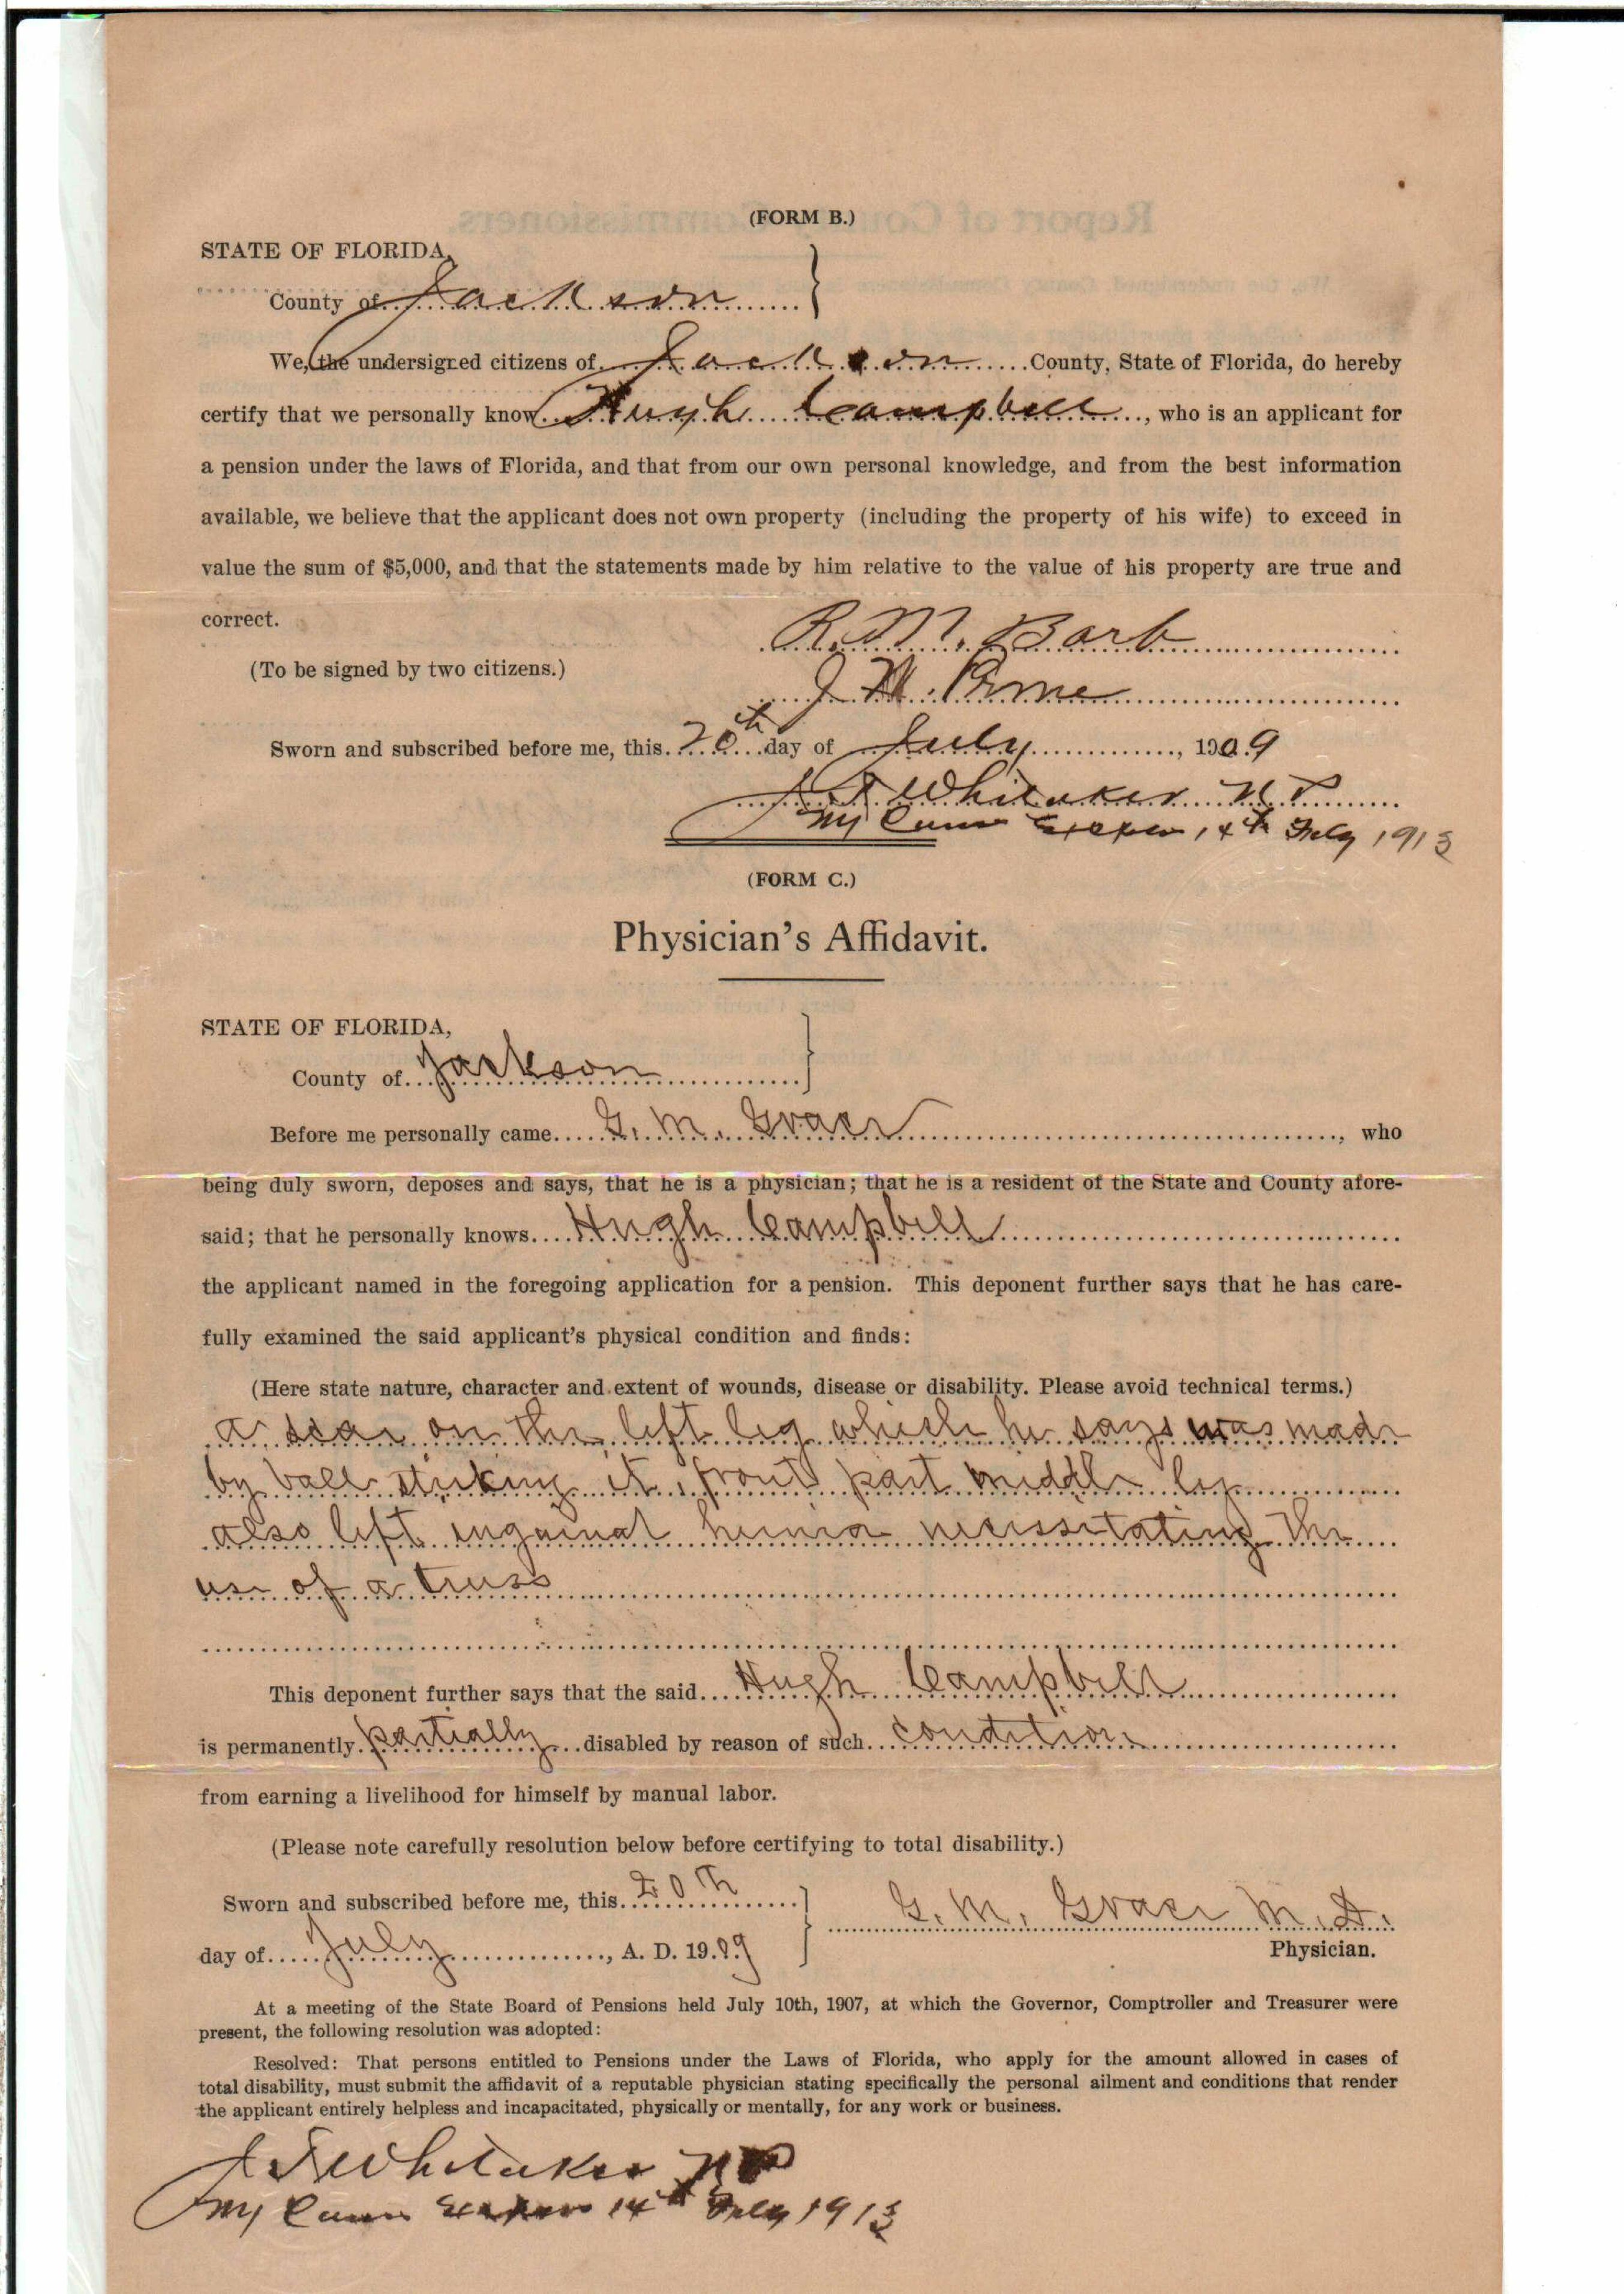 (FORM B.)
STATE OF FLORIDA,
County of Jackson
We, the undersigned citizens of Jackson County, State of Florida, do hereby
certify that we personally know Hugh Campbell, who is an applicant for
a pension under the laws of Florida, and that from our own personal knowledge, and from the best information
available, we believe that the applicant does not own property (including the property of his wife) to exceed in
value the sum of $5,000, and that the statements made by him relative to the value of his property are true and
correct.
R. M. Barb
(To be signed by two citizens.)
J
Sworn and subscribed before me, this 20th day of July, 1909
Whitaker N.P.
My 14th 1913
(FORM C.)
Physician's Affidavit.
STATE OF FLORIDA,
County of Jackson
Before me personally came G. M. Grace, who
being duly sworn, deposes and says, that he is a physician; that he is a resident of the State and County afore-
said; that he personally knows Hugh Campbell
the applicant named in the foregoing application for a pension. This deponent further says that he has care-
fully examined the said applicant's physical condition and finds:
(Here state nature, character and extent of wounds, disease or disability. Please avoid technical terms.)
a scar on the left leg which he says was made
by ball striking it, front part middle leg
also left inguinal hernia necessitating the
use of a truss
This deponent further says that the said Hugh Campbell
is permanently partially disabled by reason of such condition
from earning a livelihood for himself by manual labor.
(Please note carefully resolution below before certifying to total disability.)
Sworn and subscribed before me, this 20th
G. M. Grace M.D.
day of July, A. D. 1909
Physician.
At a meeting of the State Board of Pensions held July 10th, 1907, at which the Governor, Comptroller and Treasurer were
present, the following resolution was adopted:
Resolved: That persons entitled to Pensions under the Laws of Florida, who apply for the amount allowed in cases of
total disability, must submit the affidavit of a reputable physician stating specifically the personal ailment and conditions that render
the applicant entirely helpless and incapacitated, physically or mentally, for any work or business.
Whitaker NP
My 14th 1913